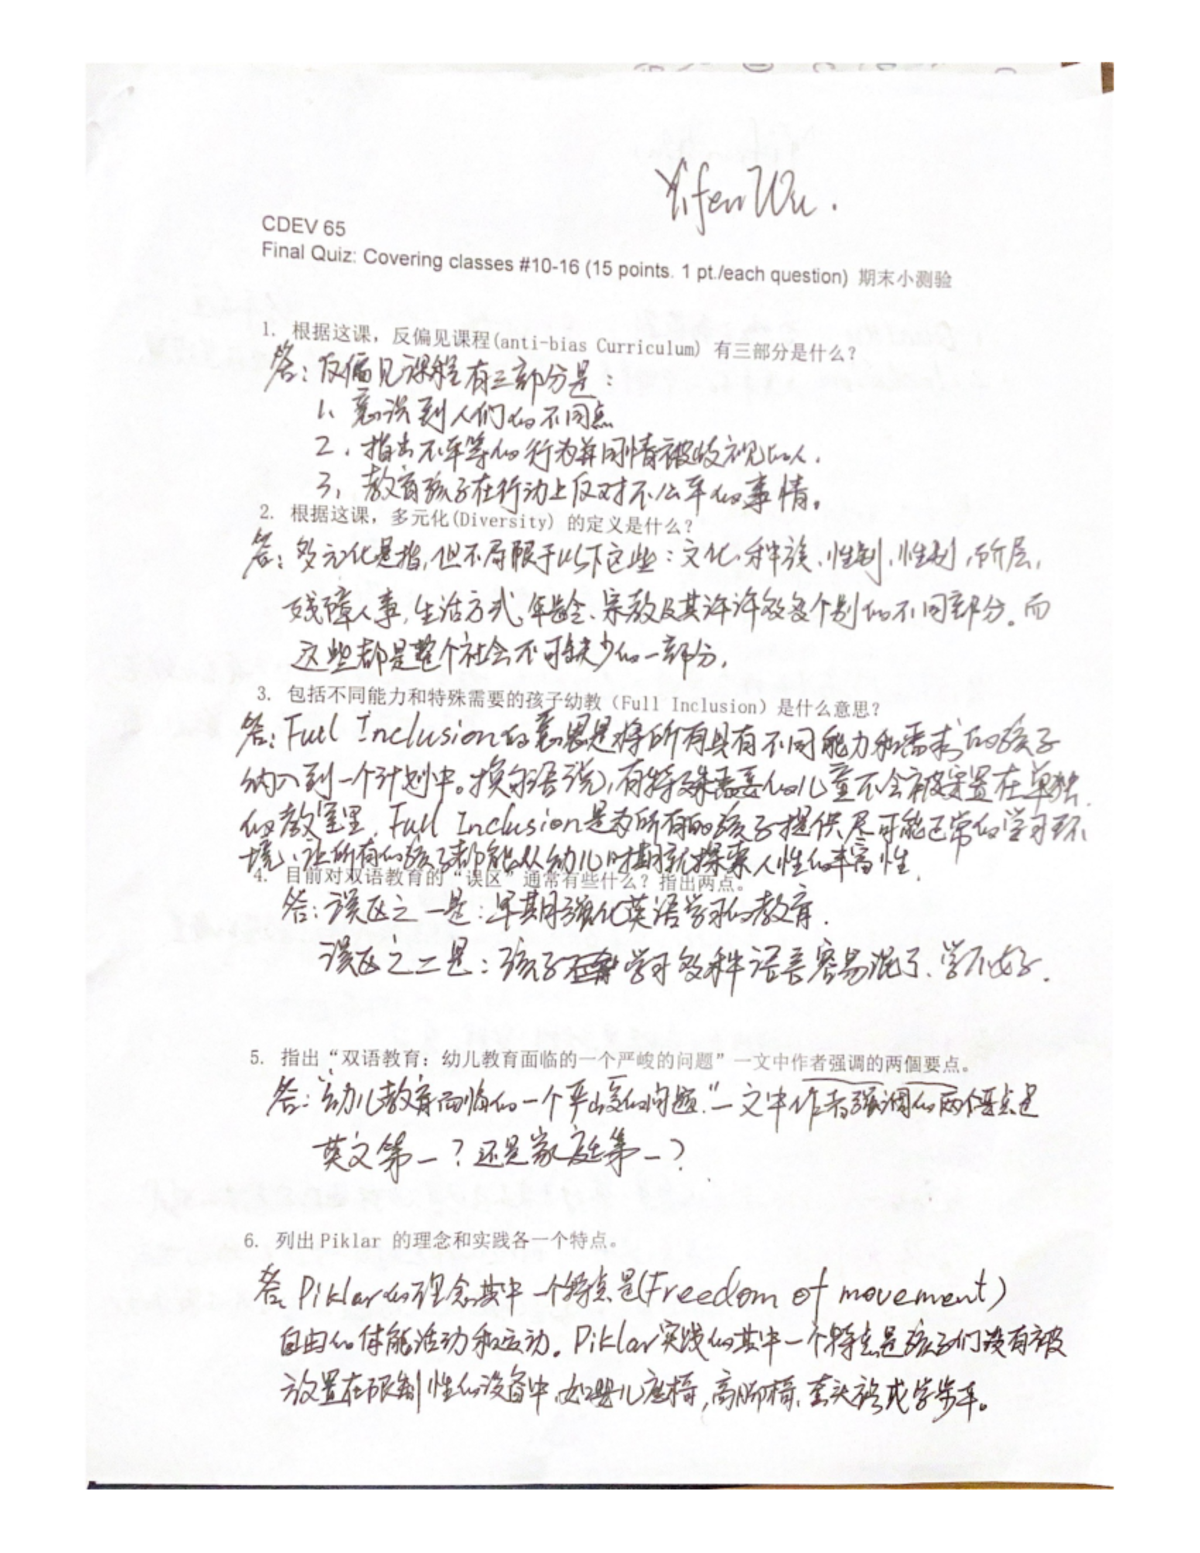 Yifen Wu.
CDEV 65
Final Quiz: Covering classes #10-16 (15 points. 1 pt./each question) 期末小测验
1. 根据这课，反偏见课程(anti-bias Curriculum) 有三部分是什么？
答：反偏见课程有三部分是：
1、意识到人们的不同点
2、指出不平等的行为并同情被歧视的人.
3、教育孩子在行动上反对不公平的事情。
2. 根据这课，多元化(Diversity) 的定义是什么？
答：多元化是指,但不局限于以下这些：文化、种族、性别,性别,阶层,
残障人事,生活方式,年龄、宗教及其许许多多个别的不同部分。而
这些都是整个社会不可缺少的一部分,
3. 包括不同能力和特殊需要的孩子幼教（Full Inclusion）是什么意思？
答: Full Inclusion的意思是将所有具有不同能力和需求的孩子
纳入到一个计划中。换句话说,有特殊需要的儿童不会被安置在单独
的教室里. Full Inclusion是为所有的孩子提供尽可能正常的学习环
境、让所有的孩子都能从幼儿时期就探索人性的丰富性.
4. 目前对双语教育的“误区”通常有些什么？指出两点。
答：误区之一是：早期强化英语学习的教育.
误区之二是：孩子学习多种语言容易混了、学不好.
5. 指出“双语教育：幼儿教育面临的一个严峻的问题”一文中作者强调的两個要点。
答:“幼儿教育面临的一个严峻的问题”一文中作者强调的两个要点是
英文第一？还是家庭第一？
6. 列出Piklar 的理念和实践各一个特点。
答, Piklar的理念其中一个特点是(Freedom of movement)
自由的体能活动和运动。Piklar实践的其中一个特点是孩子们没有被
放置在限制性的设备中,如婴儿座椅,高脚椅、或学步车。